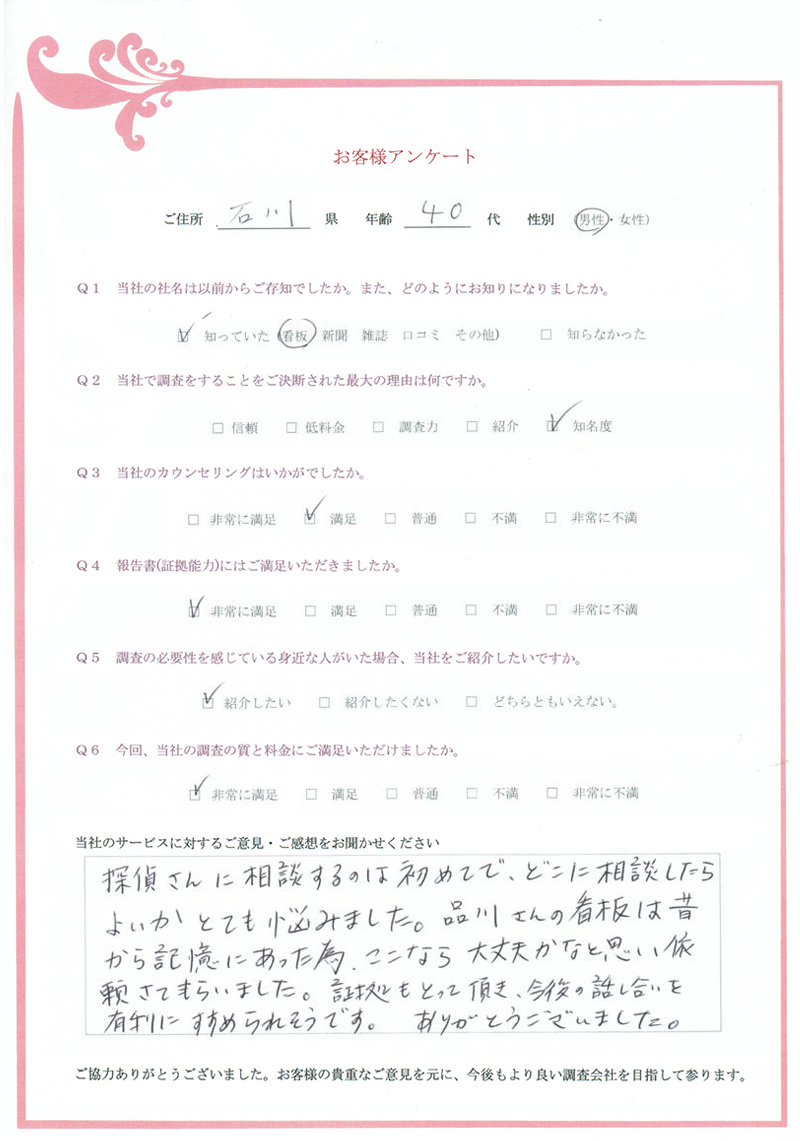 お客様アンケート
ご住所 石川 県 年齢 40 代 性別 (男性・女性)
Q1 当社の社名は以前からご存知でしたか。また、どのようにお知りになりましたか。
☑ 知っていた (看板 新聞 雑誌 口コミ その他) □ 知らなかった
Q2 当社で調査をすることをご決断された最大の理由は何ですか。
□ 信頼 □ 低料金 □ 調査力 □ 紹介 ☑ 知名度
Q3 当社のカウンセリングはいかがでしたか。
□ 非常に満足 ☑ 満足 □ 普通 □ 不満 □ 非常に不満
Q4 報告書(証拠能力)にはご満足いただきましたか。
☑ 非常に満足 □ 満足 □ 普通 □ 不満 □ 非常に不満
Q5 調査の必要性を感じている身近な人がいた場合、当社をご紹介したいですか。
☑ 紹介したい □ 紹介したくない □ どちらともいえない。
Q6 今回、当社の調査の質と料金にご満足いただけましたか。
☑ 非常に満足 □ 満足 □ 普通 □ 不満 □ 非常に不満
当社のサービスに対するご意見・ご感想をお聞かせください
探偵さんに相談するのは初めてで、どこに相談したら
よいかとても悩みました。品川さんの看板は昔
から記憶にあった為、ここなら大丈夫かなと思い依
頼さてもらいました。証拠もとって頂き、今後の話し合いを
有利にすすめられそうです。 ありがとうございました。
ご協力ありがとうございました。お客様の貴重なご意見を元に、今後もより良い調査会社を目指して参ります。